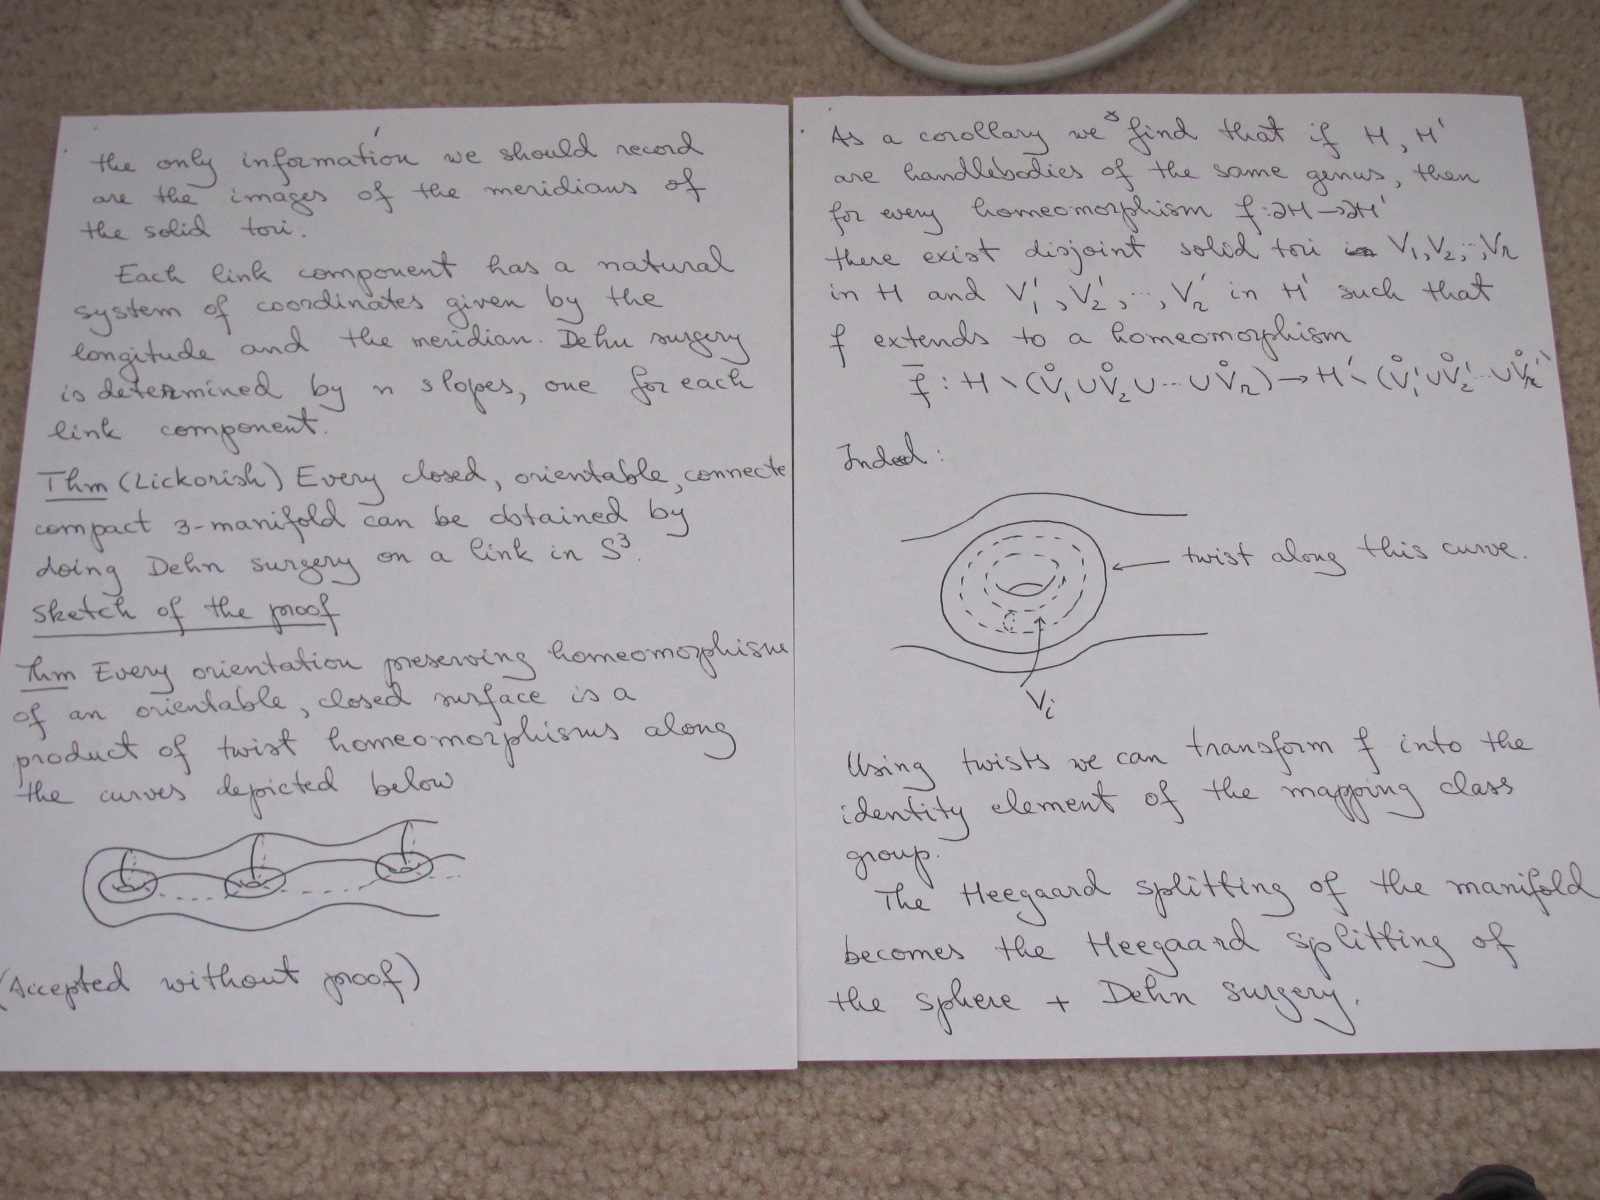 the only information we should record
are the images of the meridians of
the solid tori.
Each link component has a natural
system of coordinates given by the
longitude and the meridian. Dehn surgery
is determined by n slopes, one for each
link component.
Thm (Lickorish) Every closed, orientable, connecte
compact 3-manifold can be obtained by
doing Dehn surgery on a link in S³.
Sketch of the proof
Thm Every orientation preserving homeomorphism
of an orientable, closed surface is a
product of twist homeomorphisms along
the curves depicted below
(Accepted without proof)
As a corollary we find that if H, H'
are handlebodies of the same genus, then
for every homeomorphism f:∂H→∂H'
there exist disjoint solid tori V₁,V₂,..,Vr
in H and V₁', V₂', ..., Vr' in H' such that
f extends to a homeomorphism
f̄ : H \ (V̊₁∪V̊₂∪...∪V̊r) → H' \ (V̊₁'∪V̊₂'...∪V̊r')
Indeed:
twist along this curve.
Vi
Using twists we can transform f into the
identity element of the mapping class
group.
The Heegaard splitting of the manifold
becomes the Heegaard splitting of
the sphere + Dehn surgery.